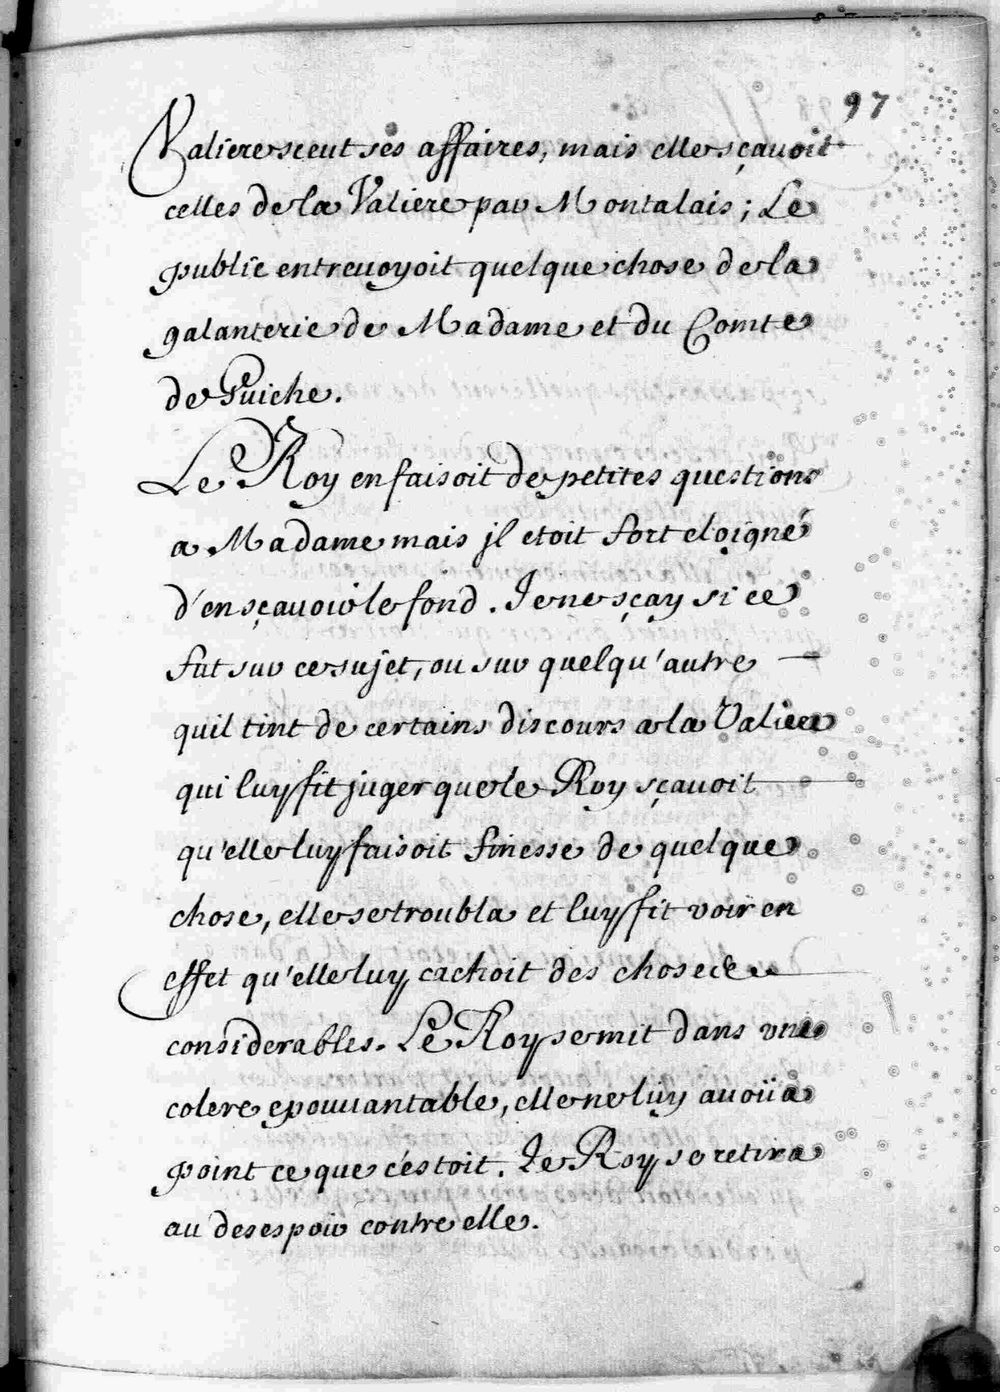 97
Valiere sceut ses affaires, mais elle sçavoit
celles de la Valiere par Montalais; Le
public entrevoyoit quelque chose de la
galanterie de Madame et du Comte
de Guiche.
Le Roy en faisoit de petites questions
a Madame mais jl etoit fort eloigné
d'en sçavoir le fond. Je ne sçay si ce
fut sur ce sujet, ou sur quelqu'autre
quil tint de certains discours a la Valiere
qui luy fit juger que le Roy sçavoit
qu'elle luy faisoit finesse de quelque
chose, elle se troubla et luy fit voir en
effet qu'elle luy cachoit des choses
considerables. Le Roy se mit dans vne
colere epouuantable, elle ne luy avoüa
point ce que c'estoit. Le Roy se retira
au desespoir contre elle.